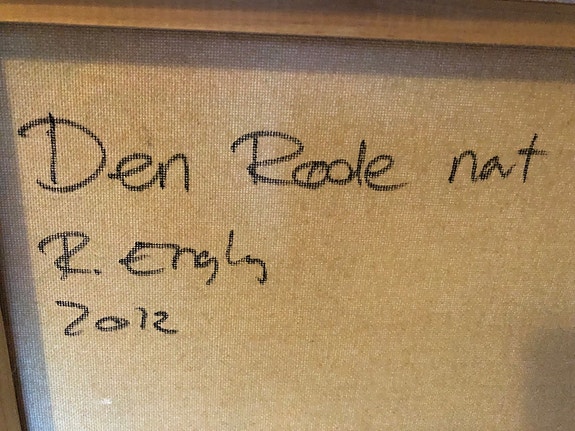 Den Roode nat
R. Engly
2012